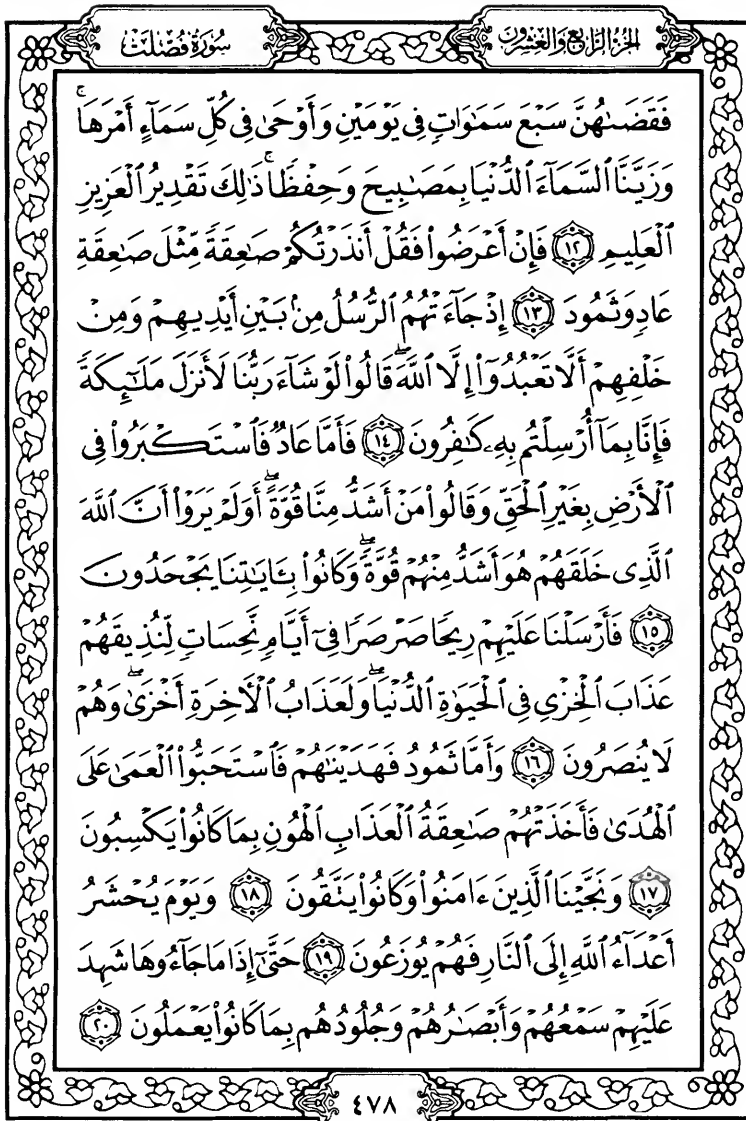 الجزء الرابع والعشرون
سورة فصلت
فَقَضَىٰهُنَّ سَبْعَ سَمَٰوَاتٍ فِى يَوْمَيْنِ وَأَوْحَىٰ فِى كُلِّ سَمَآءٍ أَمْرَهَا ۚ
وَزَيَّنَّا ٱلسَّمَآءَ ٱلدُّنْيَا بِمَصَٰبِيحَ وَحِفْظًا ۚ ذَٰلِكَ تَقْدِيرُ ٱلْعَزِيزِ
ٱلْعَلِيمِ ﴿١٢﴾ فَإِنْ أَعْرَضُوا۟ فَقُلْ أَنذَرْتُكُمْ صَٰعِقَةً مِّثْلَ صَٰعِقَةِ
عَادٍ وَثَمُودَ ﴿١٣﴾ إِذْ جَآءَتْهُمُ ٱلرُّسُلُ مِنۢ بَيْنِ أَيْدِيهِمْ وَمِنْ
خَلْفِهِمْ أَلَّا تَعْبُدُوٓا۟ إِلَّا ٱللَّهَ ۖ قَالُوا۟ لَوْ شَآءَ رَبُّنَا لَأَنزَلَ مَلَٰٓئِكَةً
فَإِنَّا بِمَآ أُرْسِلْتُم بِهِۦ كَٰفِرُونَ ﴿١٤﴾ فَأَمَّا عَادٌ فَٱسْتَكْبَرُوا۟ فِى
ٱلْأَرْضِ بِغَيْرِ ٱلْحَقِّ وَقَالُوا۟ مَنْ أَشَدُّ مِنَّا قُوَّةً ۖ أَوَلَمْ يَرَوْا۟ أَنَّ ٱللَّهَ
ٱلَّذِى خَلَقَهُمْ هُوَ أَشَدُّ مِنْهُمْ قُوَّةً ۖ وَكَانُوا۟ بِـَٔايَٰتِنَا يَجْحَدُونَ
﴿١٥﴾ فَأَرْسَلْنَا عَلَيْهِمْ رِيحًا صَرْصَرًا فِىٓ أَيَّامٍ نَّحِسَاتٍ لِّنُذِيقَهُمْ
عَذَابَ ٱلْخِزْىِ فِى ٱلْحَيَوٰةِ ٱلدُّنْيَا ۖ وَلَعَذَابُ ٱلْـَٔاخِرَةِ أَخْزَىٰ ۖ وَهُمْ
لَا يُنصَرُونَ ﴿١٦﴾ وَأَمَّا ثَمُودُ فَهَدَيْنَٰهُمْ فَٱسْتَحَبُّوا۟ ٱلْعَمَىٰ عَلَى
ٱلْهُدَىٰ فَأَخَذَتْهُمْ صَٰعِقَةُ ٱلْعَذَابِ ٱلْهُونِ بِمَا كَانُوا۟ يَكْسِبُونَ
﴿١٧﴾ وَنَجَّيْنَا ٱلَّذِينَ ءَامَنُوا۟ وَكَانُوا۟ يَتَّقُونَ ﴿١٨﴾ وَيَوْمَ يُحْشَرُ
أَعْدَآءُ ٱللَّهِ إِلَى ٱلنَّارِ فَهُمْ يُوزَعُونَ ﴿١٩﴾ حَتَّىٰٓ إِذَا مَا جَآءُوهَا شَهِدَ
عَلَيْهِمْ سَمْعُهُمْ وَأَبْصَٰرُهُمْ وَجُلُودُهُم بِمَا كَانُوا۟ يَعْمَلُونَ ﴿٢٠﴾
٤٧٨